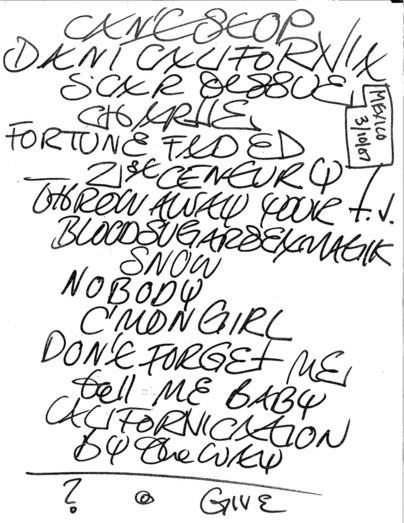 CAN'T STOP
DANI CALIFORNIA
SCAR TISSUE
CHARLIE
FORTUNE FADED
21st CENTURY
THROW AWAY YOUR T.V.
BLOODSUGARSEXMAGIK
SNOW
NOBODY
C'MON GIRL
DON'T FORGET ME
tell ME BABY
CALIFORNICATION
BY the WAY
? GIVE
MEXICO
3/10/07